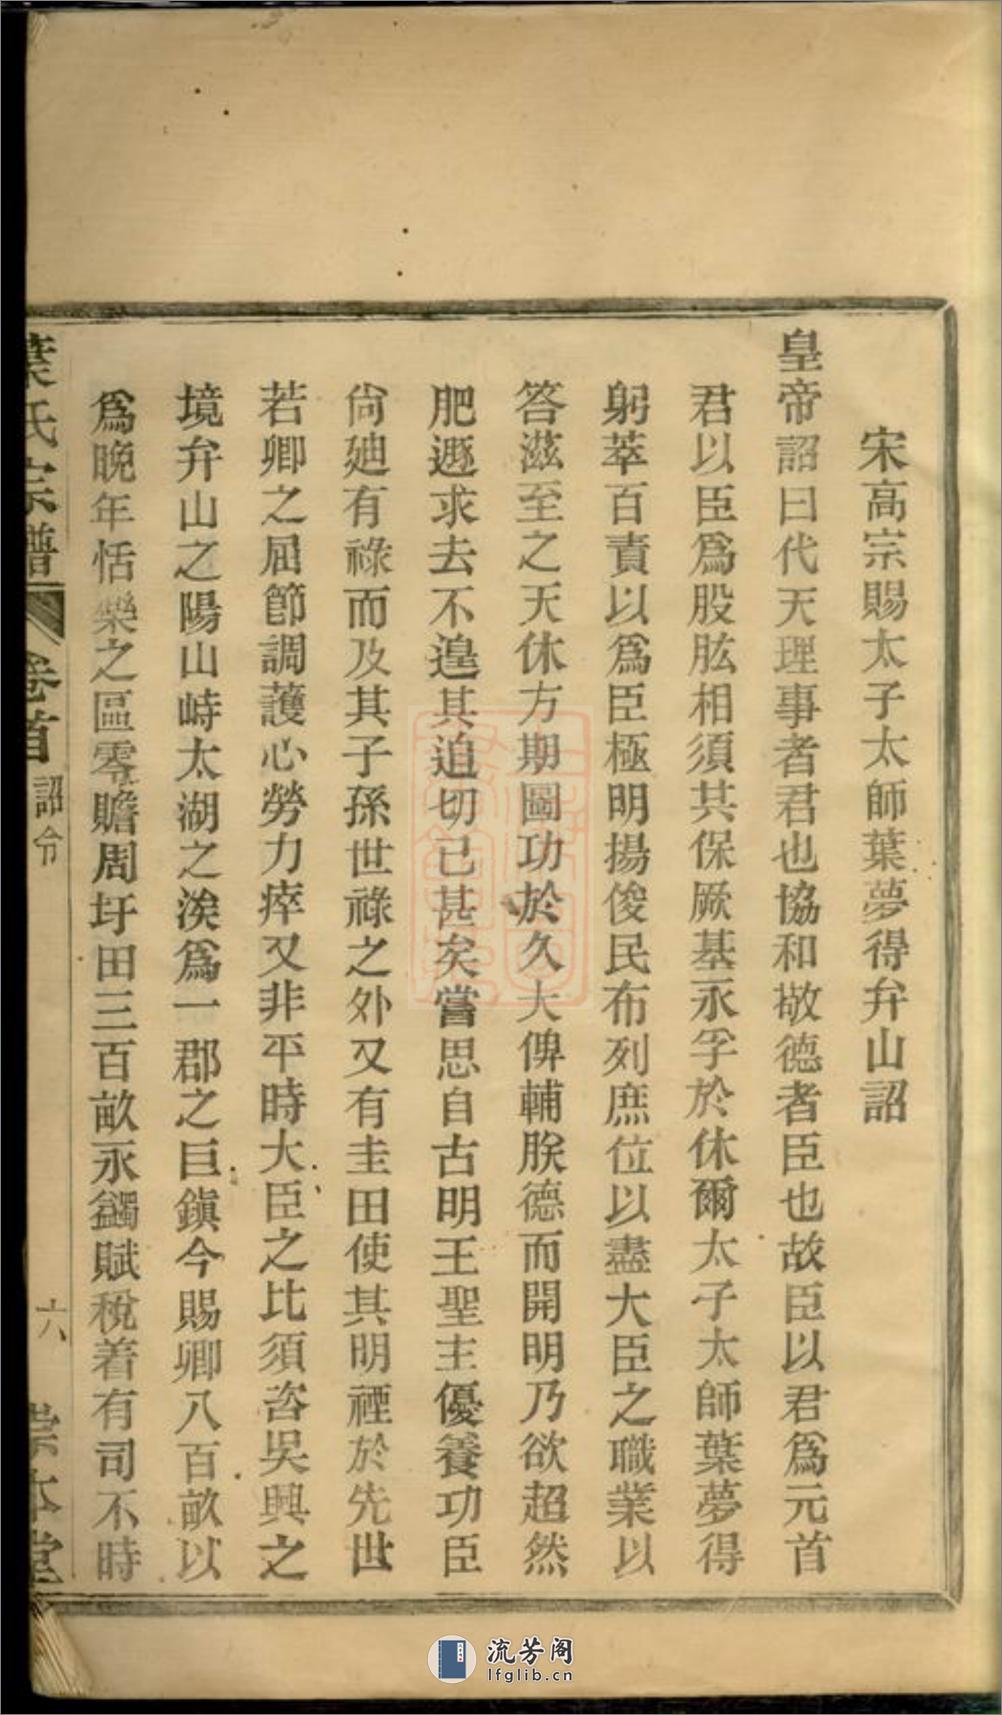 宋高宗賜太子太師葉夢得弁山詔
皇帝詔曰代天理事者君也協和敬德者臣也故臣以君爲元首
君以臣爲股肱相須其保厥基永孚於休爾太子太師葉夢得
躬萃百責以爲臣極明揚俊民布列庶位以盡大臣之職業以
答滋至之天休方期圖功於久大俾輔朕德而開明乃欲超然
肥遯求去不遑其迫切已甚矣嘗思自古明王聖主優養功臣
尙廸有祿而及其子孫世祿之外又有圭田使其明禋於先世
若卿之屈節調護心勞力瘁又非平時大臣之比須咨吳興之
境弁山之陽山峙太湖之涘爲一郡之巨鎭今賜卿八百畝以
爲晚年恬樂之區零贍周圩田三百畝永蠲賦稅着有司不時
葉氏宗譜 卷首 詔令 六 崇本堂
流芳阁
lfglib.cn